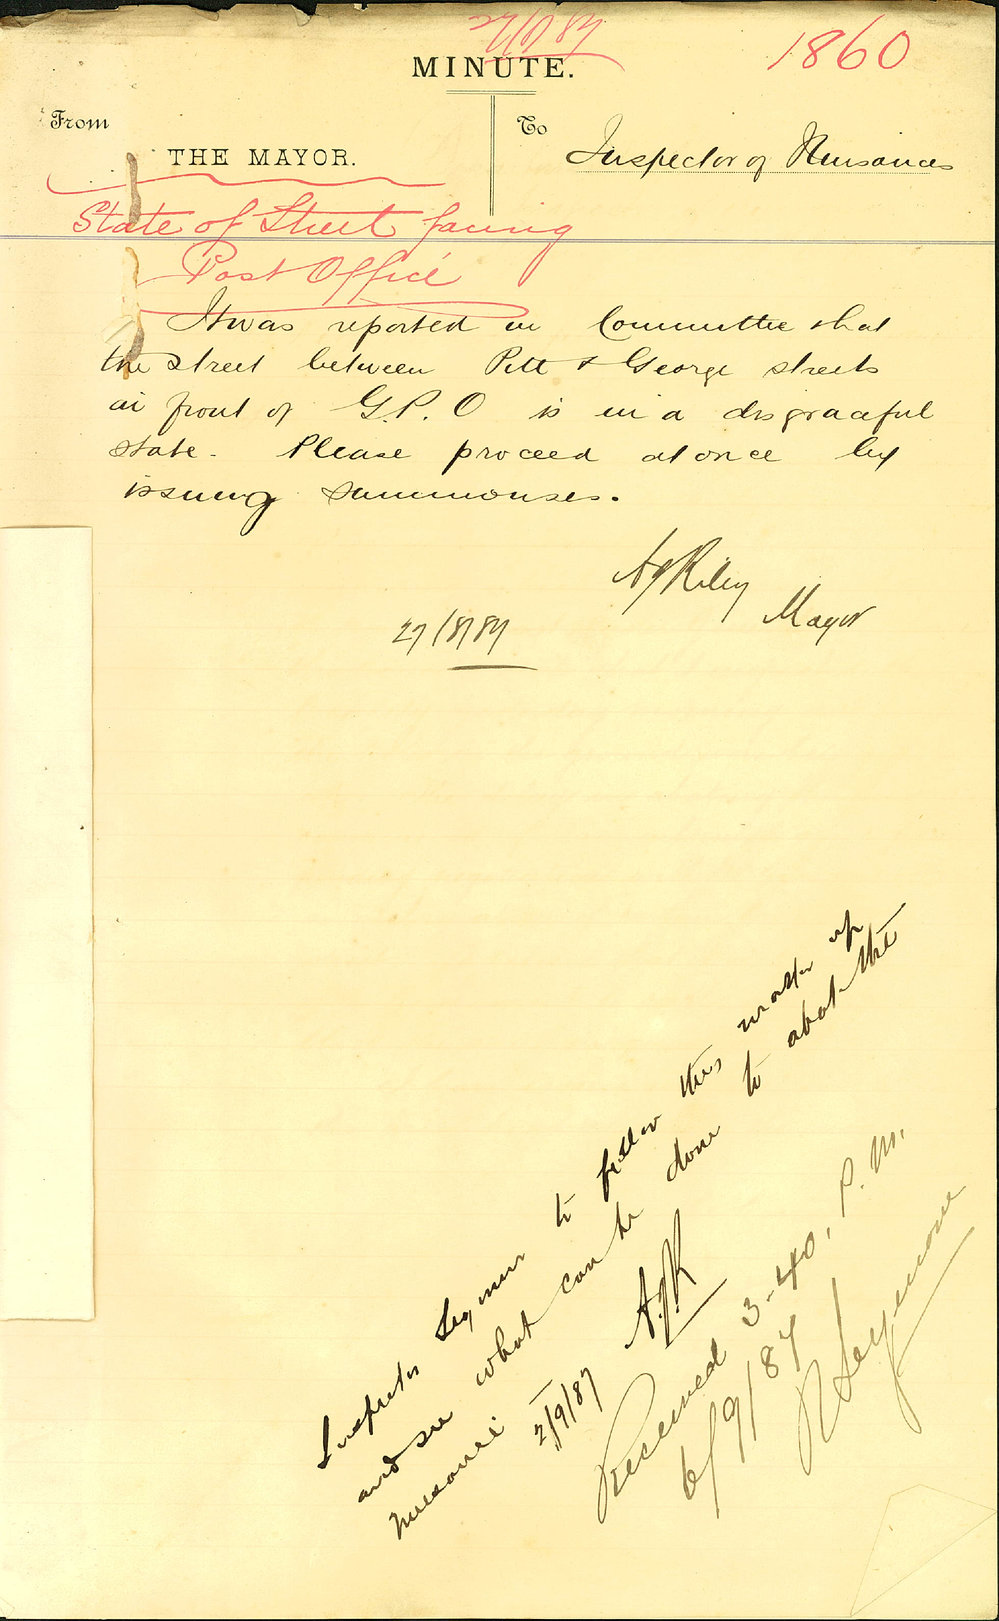 27/8/87
1860
MINUTE.
From
THE MAYOR.
To
Inspector of Nuisances
State of Street facing
Post Office
It was reported in Committee that
the street between Pitt & George streets
in front of G.P.O is in a disgraceful
state. Please proceed at once by
issuing summonses.
AJRiley
Mayor
27/8/87
Inspector Seymour to follow this matter up
and see what can be done to abate the
nuisance
2/9/87
A.J.R
Received 3-40, P.M.
6/9/87
R Seymour